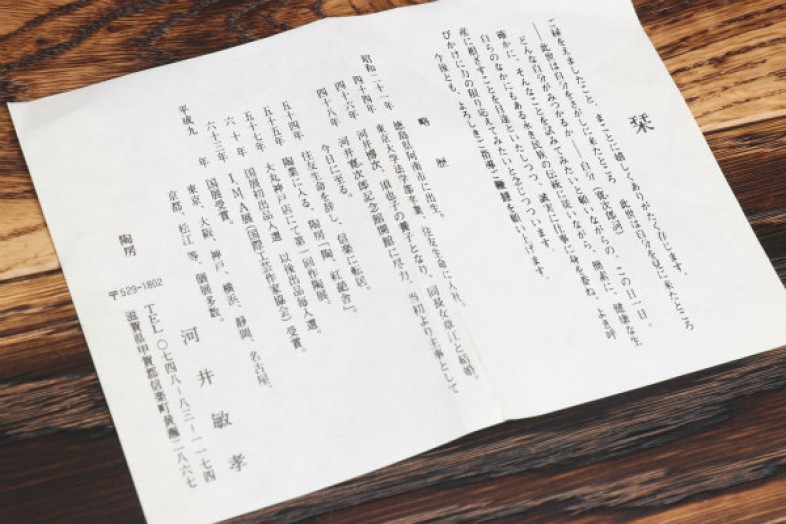 栞
ご縁をえましたこと、まことに嬉しくありがたく存じます。
──此世は自分をさがしに来たところ　此世は自分を見に来たところ
どんな自分が見つかるか──自分（寛次郎詞）　この日一日。
確かに、そんなことを試みてみたいと願いながらの、簡素に、健康な生
自らのなかにもある永き民族の伝統に従いながら、誠実に仕事に身を委ね、よき呼
産に根ざすことを用達といたしつつ、
びかけに力の限り応えてみたいと念じつついます。
今後とも、よろしきご指導ご鞭撻を願い上げます。
略歴
昭和二十一年　徳島県阿南市に出生。
四十四年　東京大学法学部卒業、住友生命に入社。
四十六年　河井博次、須也子の養子となり、同長女章江と結婚。
四十八年　河井寛次郎記念館開館に尽力、当初より主事として
今日に至る。
五十四年　住友生命を辞し、信楽に転居。
陶業に入る、陶房「陶、紅絶舎」。
五十五年　大丸神戸店にて第一回作陶展。
五十七年　国展初出品入選　以後出品毎入選。
六十年　IMA展（国際工芸作家協会）受賞。
六十三年　国展受賞。
平成九年　東京、大阪、神戸、横浜、静岡、名古屋、
京都、松江等、個展多数。
陶房　河井敏孝
〒529-1802
滋賀県甲賀郡信楽町黄瀬二八六七
TEL〇七四八-八三-一一七四